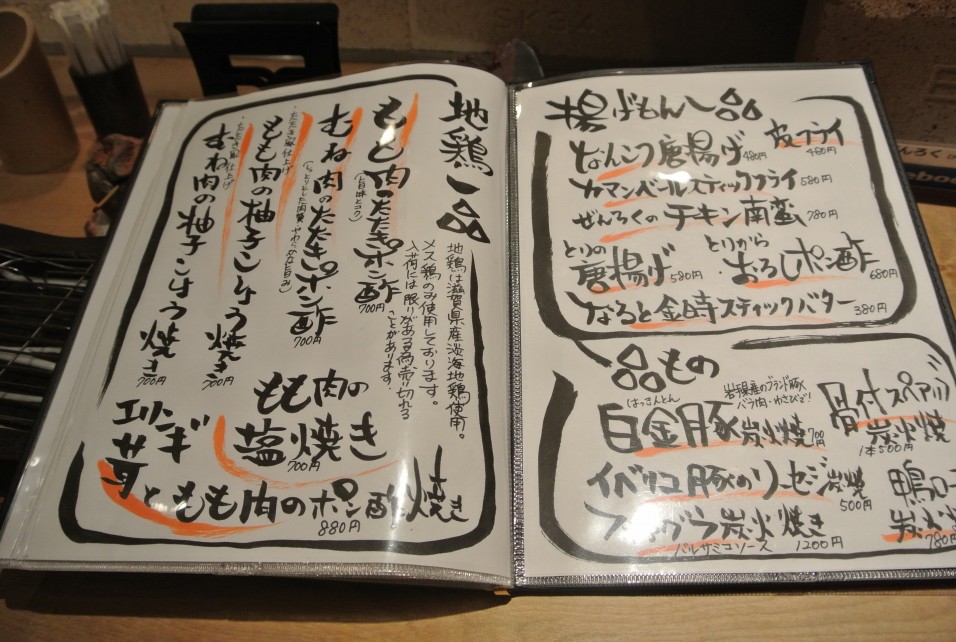 地鶏一品
地鶏は滋賀県産淡海地鶏使用。
メス鶏のみ使用しております。
入荷には限りがある為、売り切れる
ことがあります。
もも肉のたたきポン酢
(旨味とコク)
700円
むね肉のたたきポン酢
(しっとりとした肉質 やわらかな旨み)
700円
もも肉の柚子こしょう焼き
・たたき風仕上げ
700円
むね肉の柚子こしょう焼き
・たたき風仕上げ
700円
もも肉の
塩焼き
700円
エリンギ
茸ともも肉のポン酢焼き
880円
揚げもん一品
なんこつ唐揚げ 480円
皮フライ
480円
カマンベールスティックフライ 580円
ぜんろくのチキン南蛮 780円
とりの
唐揚げ 580円
とりから
おろしポン酢
680円
なると金時スティックバター 380円
品もの
はっきんとん
岩手県産のブランド豚
バラ肉・わさびで!
白金豚炭火焼 700円
骨付スペアリブ
炭火焼
1本500円
イベリコ豚のソーセージ炭焼
500円
フォアグラ炭火焼き
バルサミコソース 1200円
鴨ロー
炭火
780円
んろく